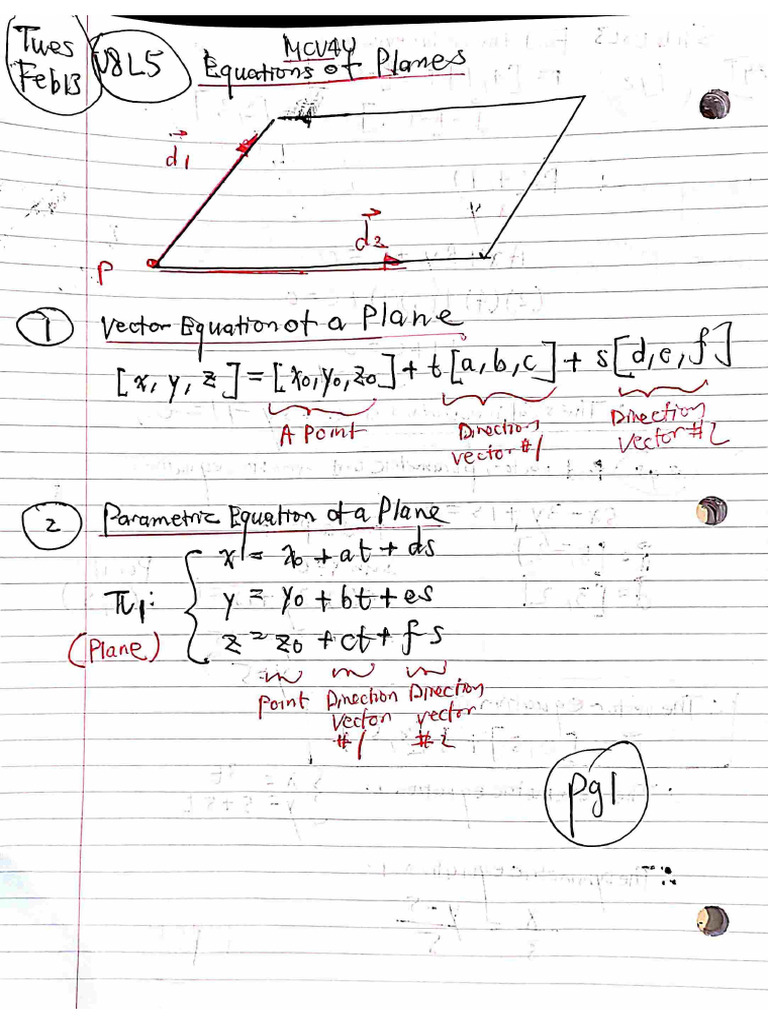 Tues
Feb13
U8L5
MCV4U
Equations of Planes
d1
d2
P
1 Vector Equation of a Plane
[x, y, z] = [x0, y0, z0] + t[a, b, c] + s[d, e, f]
A Point
Direction
Vector #1
Direction
Vector #2
2 Parametric Equation of a Plane
x = x0 + at + ds
π1: y = y0 + bt + es
(Plane) z = z0 + ct + fs
Point Direction Direction
Vector vector
#1 #2
pg1